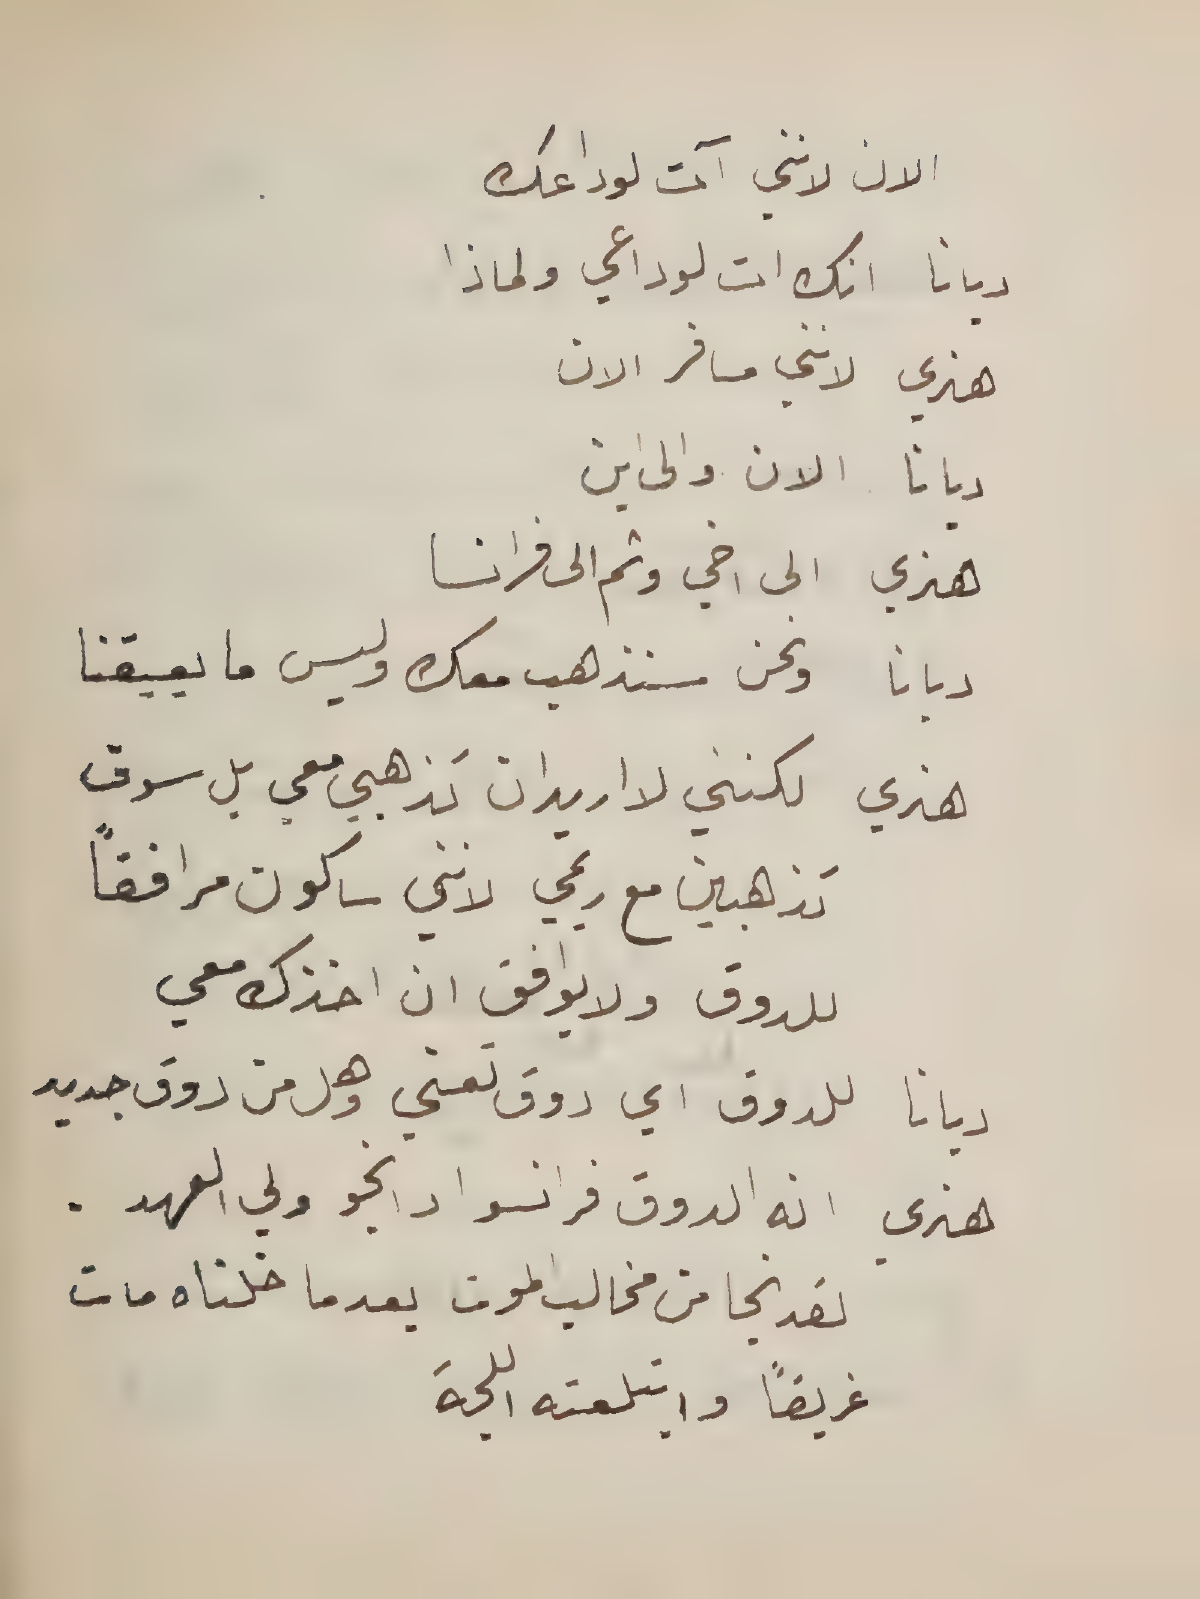 الان لانني آت لوداعك
ديانا انك ات لوداعي ولماذا
هنري لانني مسافر الان
ديانا الان والى اين
هنري الى اخي وثم الى فرانسا
ديانا ونحن سنذهب معك وليس ما يعيقنا
هنري لكنني لا اريد ان تذهبي معي بل سوف
تذهبين مع ريمي لانني ساكون مرافقاً
للدوق ولا يوافق ان اخذك معي
ديانا للدوق اي دوق تعني وهل من دوق جديد
هنري انه الدوق فرانسوا دانجو ولي العهد .
لقد نجا من مخالب الموت بعدما خلناه مات
غريقاً وابتلعته اللجة